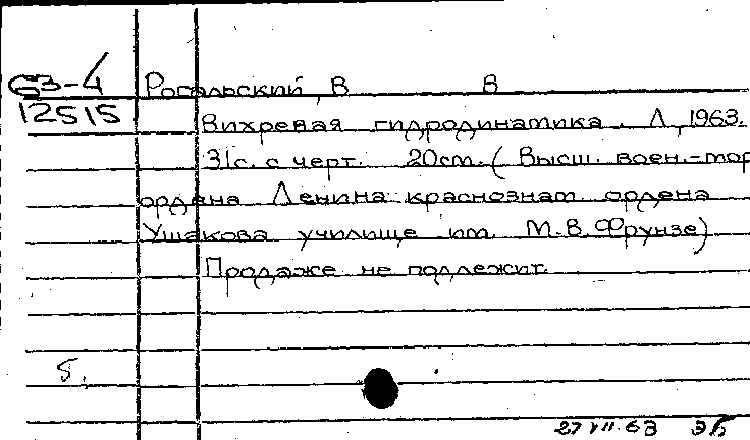 63-4 Рогальский, В В
12515
Вихревая гидродинамика. Л, 1963.
31с. с черт. 20см. (Высш. воен.-мор
ордена Ленина краснознам. ордена
Ушакова училище им. М.В.Фрунзе)
Продаже не подлежит.
5.
27 VII.63 ЭБ